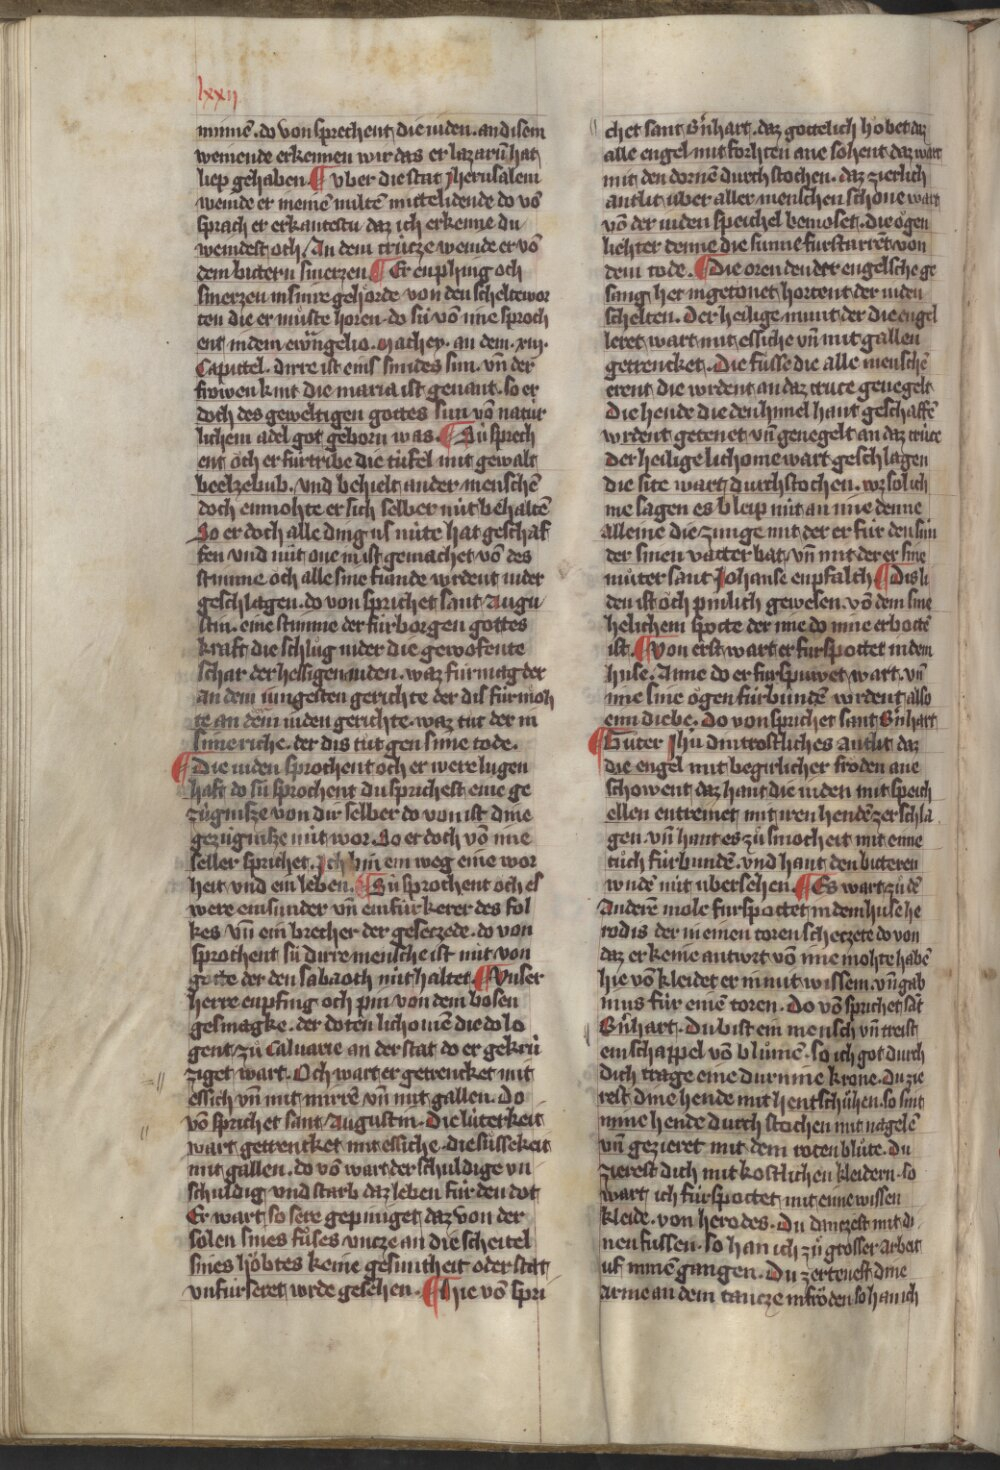 lxxij
minnē. do von sprechent die iuden. an disem
weinende erkennen wir das er lazarū hat
liep gehaben. ¶ Vber die stat Jherusalem
weinde er meinē miltē mittelidende do vō
sprach er erkantestu daz ich erkenne du
weindest och / An dem crútze weinde er vō
dem bittern smerzen ¶ Er enphing och
smerzen in sinre gehörde von den scheltewor
ten die er můste horen. do sú vō ime sproch
ent in dem ewāngelio. Mathey. an dem. xiij.
Capittel. dirre ist eins smides sun. vn̄ der
frowen kint die maria ist genant. so er
doch des geweltigen gottes sun vō natúr
lichem adel got geborn was. ¶ Sú sprech
ent och er fúrtribe die túfel mit gewalt
beelzebub. vnd behielt ander menschē
doch enmohte er sich selber nút behaltē
So er doch alle ding us núte hat geschaf
fen vnd nút one in ist gemachet vō des
stimme och alle sine fiande wrdent nider
geschlagen. do von sprichet sant Augu
stin. eine stimme der fúrborgen gottes
kraft die schlůg nider die gewofente
schar der helligen iuden. waz fúrmag der
an dem iungesten gerichte der dis fúrmoh
te an dem iuden gerichte. waz tůt der in
sime riche. der dis tůt gen sime tode.
¶ Die iuden sprochent och er were lugen
haft do sú sprochent du sprichest eine ge
zúgnisze von dir selber do von ist dine
gezúgnisze nút wor. So er doch vō ime
selber sprichet. Ich bin ein weg eine wor
heit vnd ein leben. ¶ Sú sprochent och es
were ein sunder vn̄ ein fúrkerer des fol
kes vn̄ ein brecher der gesetzede. do von
sprochent sú dirre mensche ist nút von
gotte der den sabaoth nút haltet. ¶ Vnser
herre enpfing och pin von dem bosen
gesmagke. der doten lichomen die do lo
gent zů Caluarie an der stat do er gekrú
ziget wart. Och wart er getrencket mit
essich vn̄ mit mirrē vn̄ mit gallen. Do
vō sprichet sant Augustin. Die lúterkeit
wart getrencket mit essiche. die sússekeit
mit gallen. do vō wart der schuldige vn
schuldig vnd starb daz leben fúr den dot
Er wart so sere gepiniget daz von der
solen sines fůses vntze an die scheitel
sines höbtes keine gesuntheit oder stat
vnfúrseret wrde gesehen. ¶ Hie vō spri
chet sant Bn̄hart. daz gottelich hobet daz
alle engel mit forhten ane sohent daz wart
mit den dornē durchstochen. daz zierlich
antlit úber aller menschen schone wart
vō der iuden speichel bemoset. die ögen
liehter denne die sunne fúrstarrēt von
dem tode. ¶ Die oren den der engelsche ge
sang her ingetonet hortent der iuden
schelten. Der heilige munt der die engel
leret wart mit essiche vn̄ mit gallen
getrencket. Die fússe die alle menschē
erent die wrdent an daz crúce genegelt
die hende die den himel hant geschaffē
wrdent getenet vn̄ genegelt an daz crúce
der heilige lichome wart geschlagen
die site wart durchstochen. wz sol ich
me sagen es bleip nút an ime denne
alleine die zunge mit der er fúr den sún
der sinen vatter bat vn̄ mit der er sine
můter sant Johanse enpfalch ¶ Dis li
den ist och pinlich gewesen. vō dem sme
helichem spotte der ime do inne erbottē
ist. ¶ Von erst wart er fúrspottet in dem
huse. Anne do er fúrspuwet wart. vn̄
ime sine ögen fúrbundē wrdent also
eim diebe. Do von sprichet sant Bn̄hart
¶ Gůter Jhū din trostliches antlit daz
die engel mit begirlicher froden ane
schowent daz hant die iuden mit speich
ellen entreinet mit iren hendē zerschla
gen. vn̄ hant es zů smocheit mit eime
tůch fúrbundē. vnd hant den bitteren
wndē nút vbersehen. ¶ Es wart zů dē
anderē mole fúrspottet in dem huse he
rodis der in einen toren schetzete do von
daz er keine antwrt vō ime mohte habē
hie vō kleidet er in mit wissem. vn̄ gab
in us fúr einē toren. Do vō sprichet sāt
Bn̄hart. Du bist ein mensch vn̄ treist
ein schappel vō blůmē. so ich got durch
dich trage eine durnine krone. Du zie
rest dine hende mit hentschůhen. so sint
mine hende durchstochen mit nagelē
vn̄ gezieret mit dem roten blůte. Du
zierest dich mit kostlichen kleidern. so
wart ich fúrspottet mit eime wissen
kleide. von herodes. Du dantzest mit di
nen fussen. so han ich zů grosser arbeit
uf minnē gangen. Du zertenest dine
arme an dem tantze in fröden so han ich